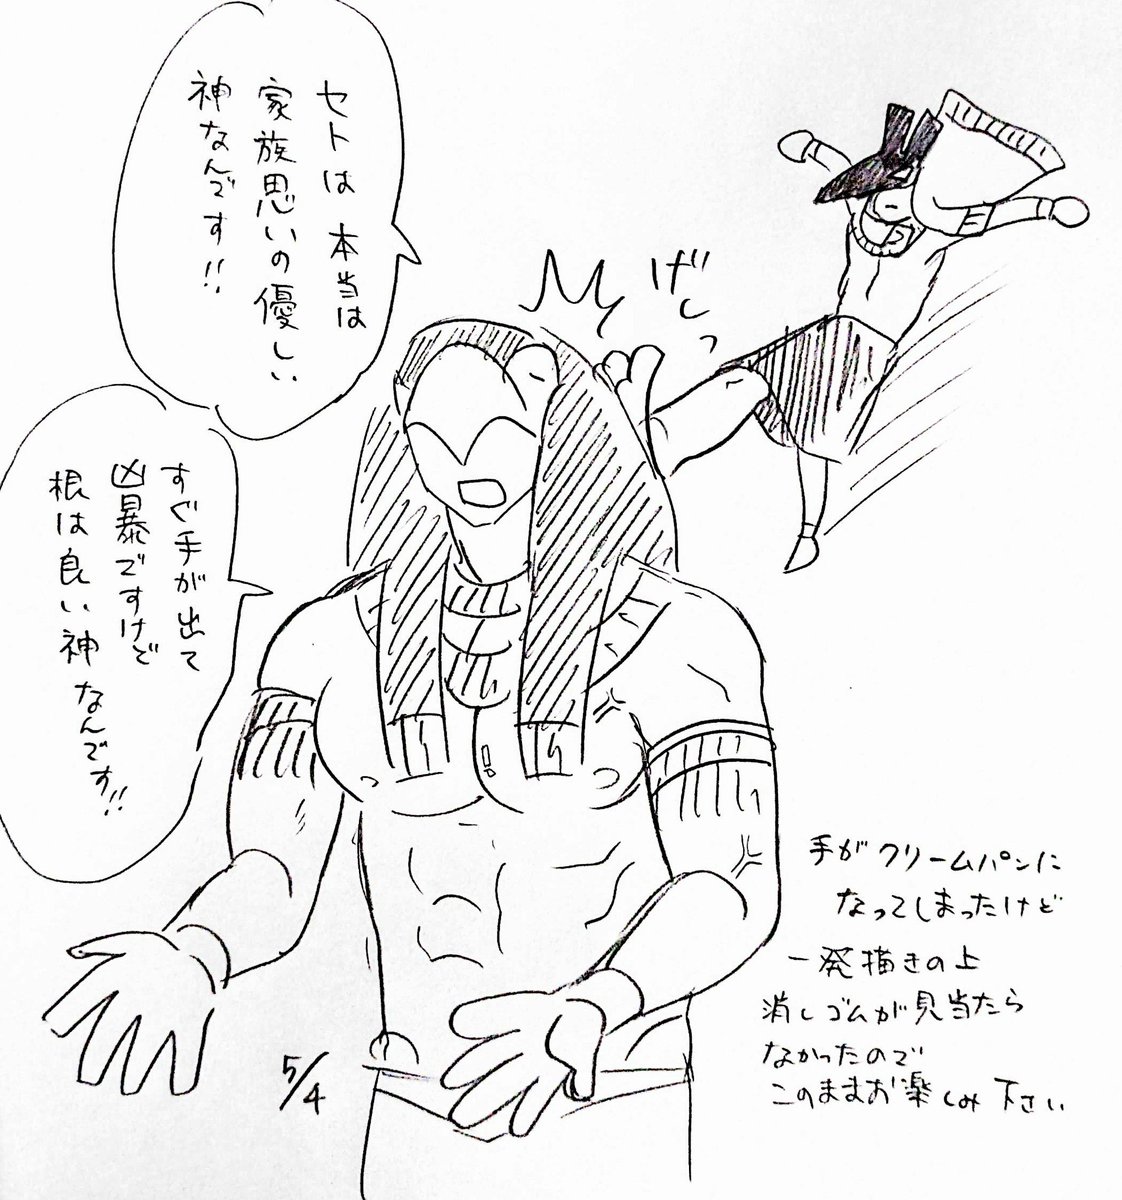 セトは本当は
家族思いの優しい
神なんです!!
すぐ手が出て
凶暴ですけど
根は良い神なんです!!
げしっ
手がクリームパンに
なってしまったけど
一発描きの上
消しゴムが見当たら
なかったので
このままお楽しみ下さい
5/4